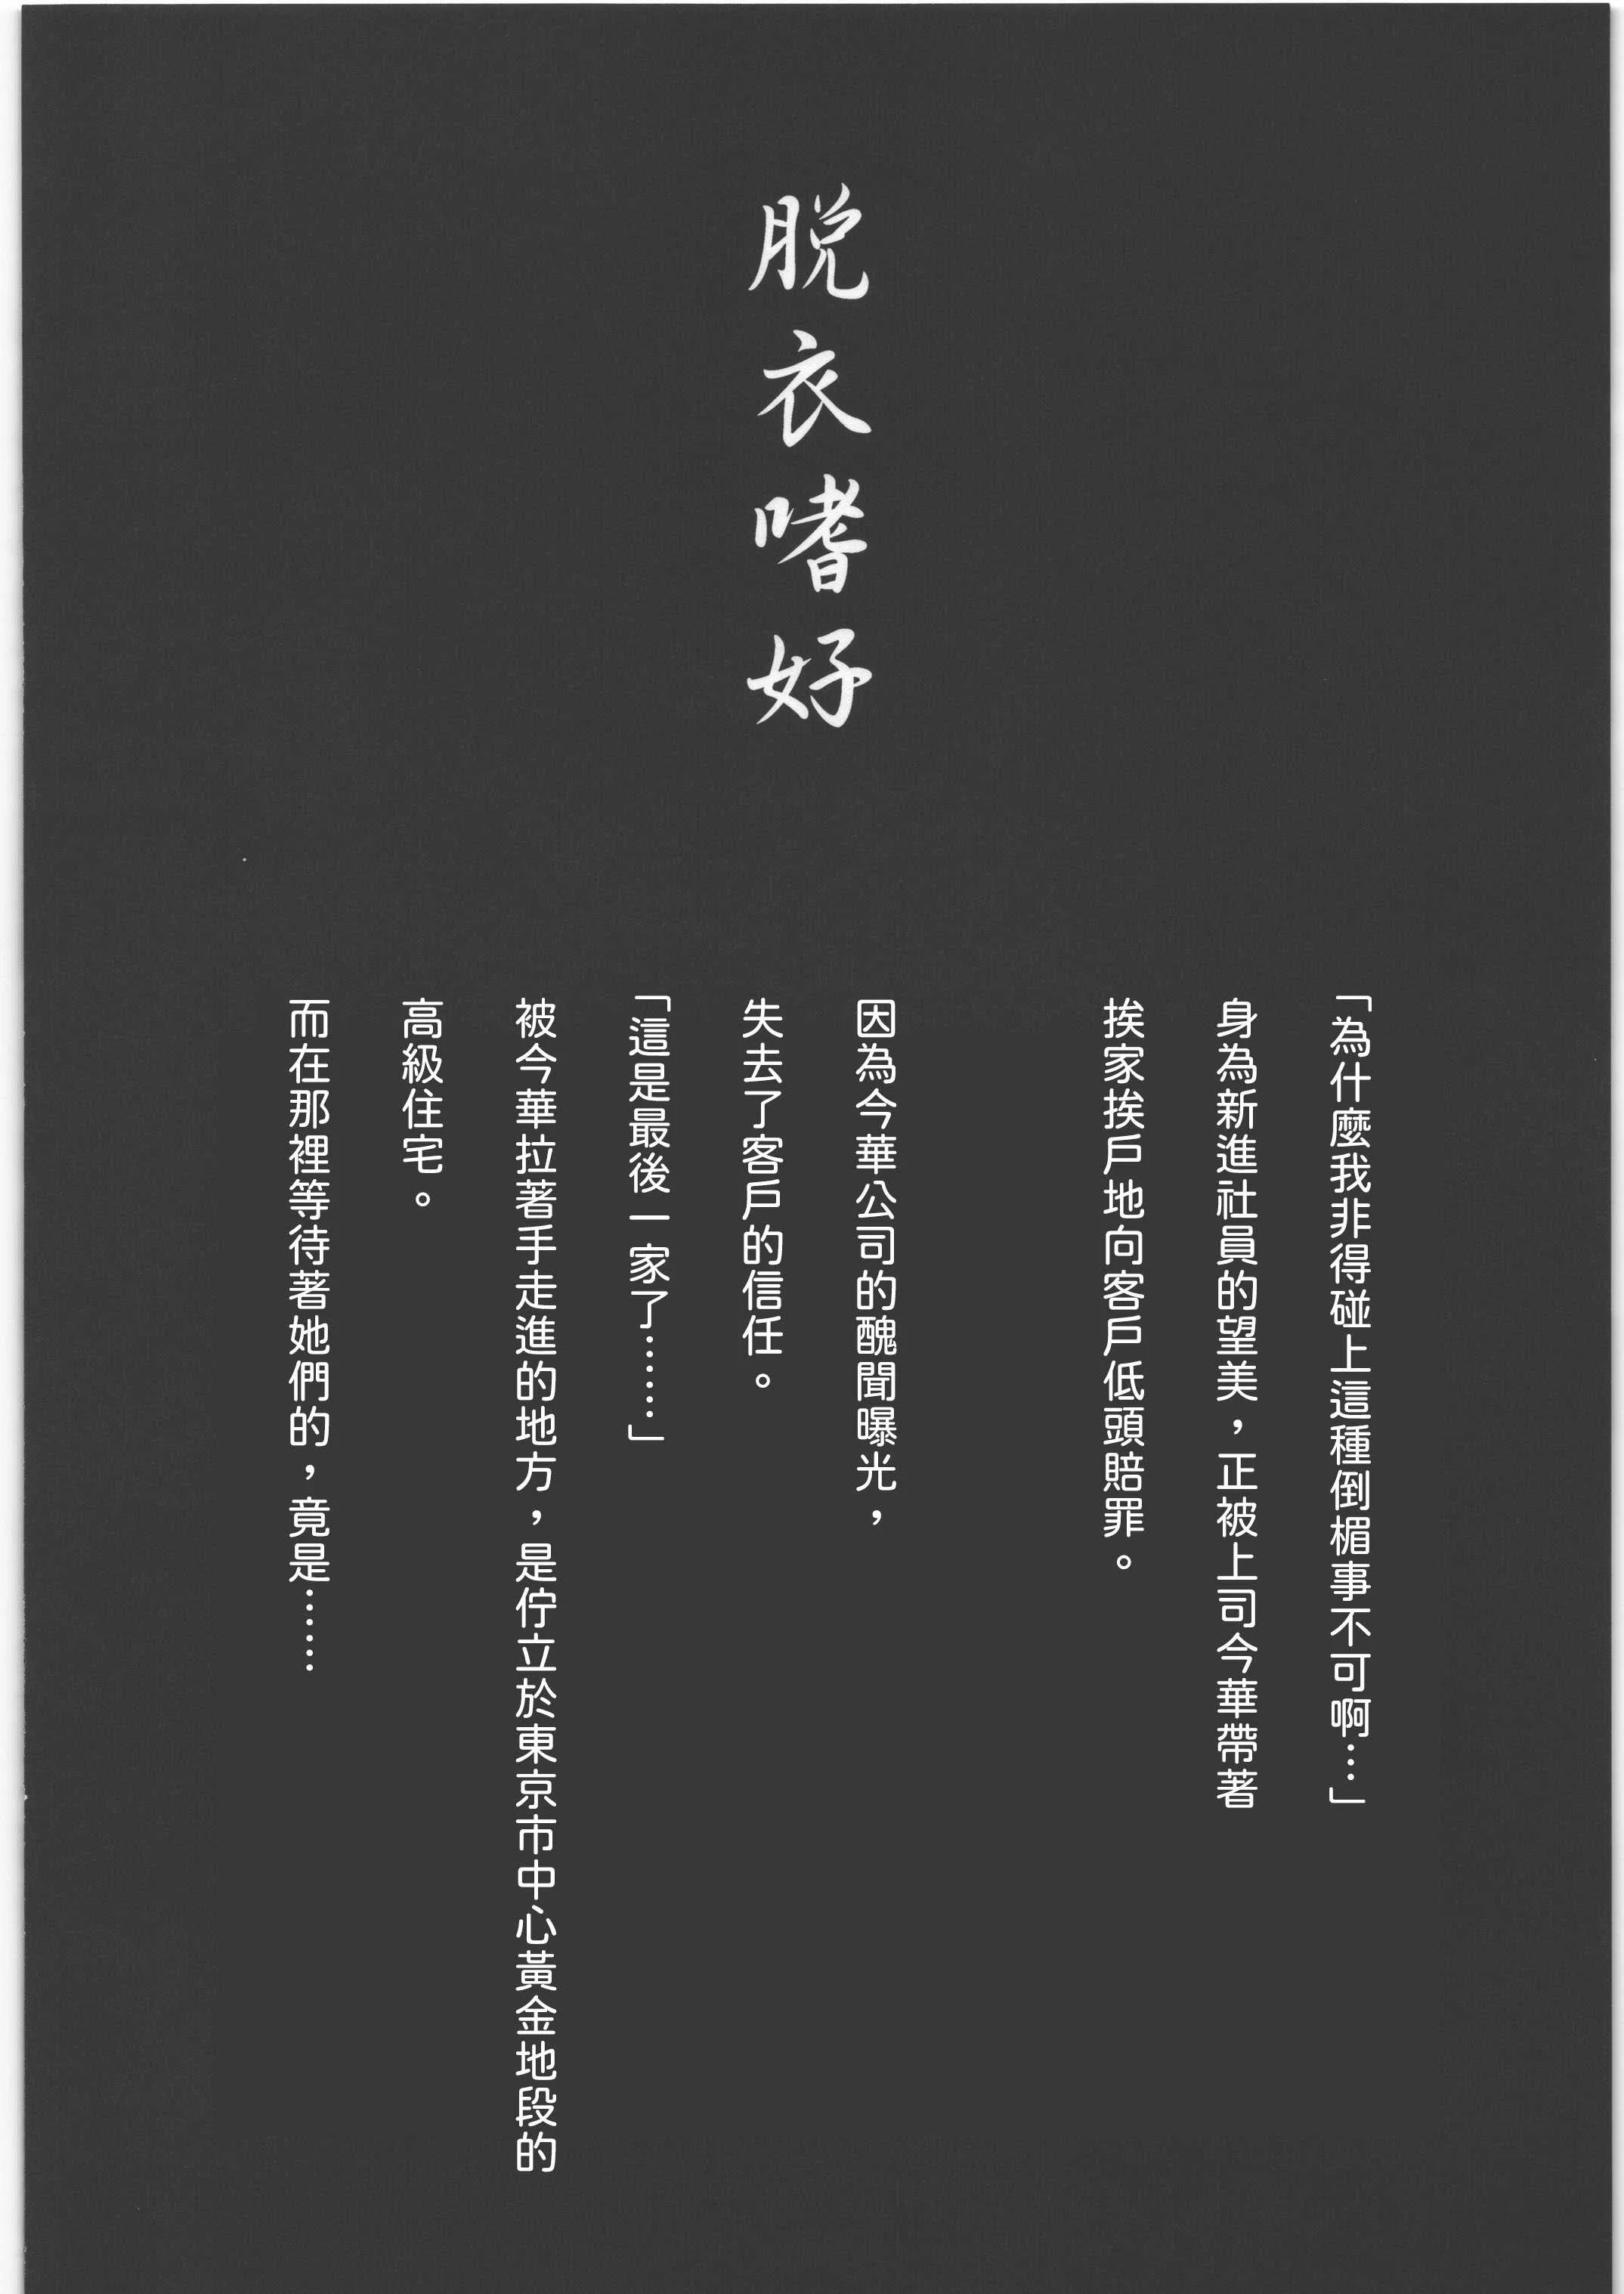 脱衣嗜好
「為什麼我非得碰上這種倒楣事不可啊…」
身為新進社員的望美，正被上司今華帶著
挨家挨戶地向客戶低頭賠罪。
因為今華公司的醜聞曝光，
失去了客戶的信任。
「這是最後一家了……」
被今華拉著手走進的地方，是佇立於東京市中心黃金地段的
高級住宅。
而在那裡等待著她們的，竟是……